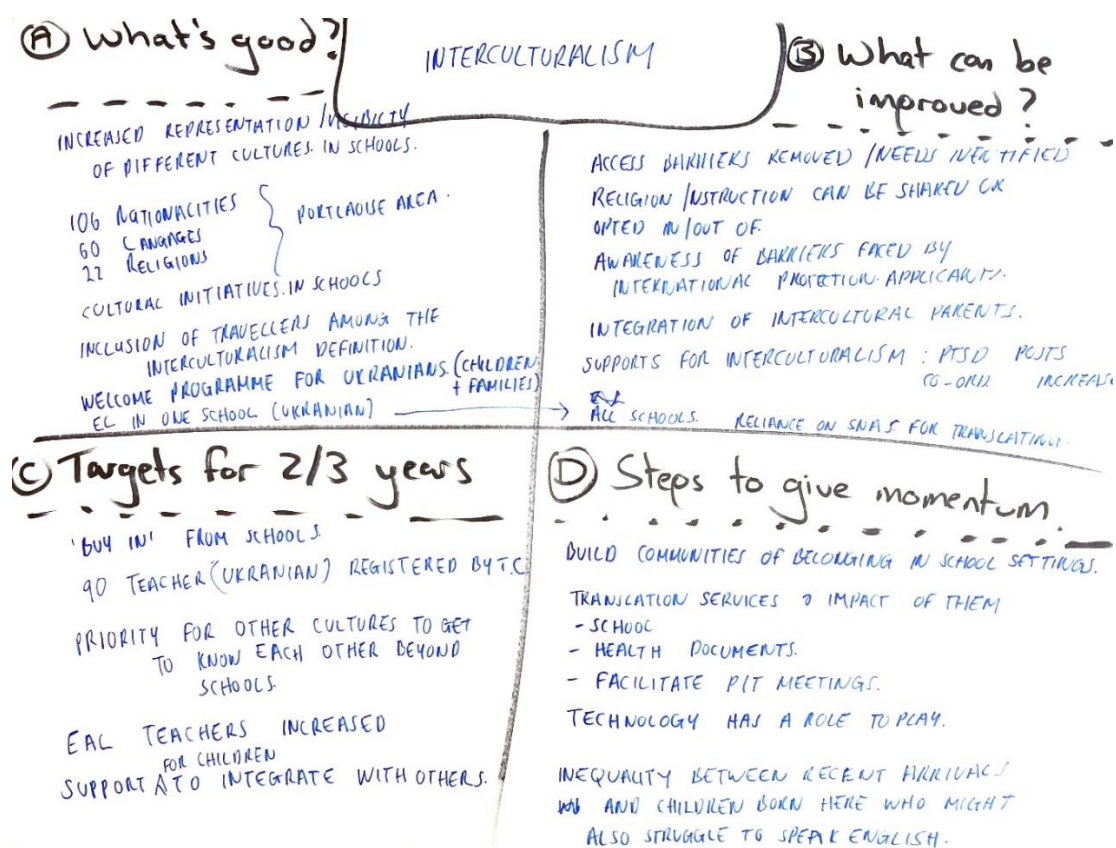 INTERCULTURALISM
Ⓐ What's good?
INCREASED REPRESENTATION / VISIBILTY
OF DIFFERENT CULTURES. IN SCHOOLS.
106 NATIONALITIES
60 LANGAGES
22 RELIGIONS
PORTLAOISE AREA.
CULTURAL INITIATIVES. IN SCHOOLS
INCLUSION OF TRAVELLERS AMONG THE
INTERCULTURALISM DEFINITION.
WELCOME PROGRAMME FOR UKRANIANS. (CHILDREN
+ FAMILIES)
EL IN ONE SCHOOL (UKRANIAN) →
Ⓑ What can be
improved?
ACCESS BARRIERS REMOVED / NEEDS IDENTIFIED
RELIGION /INSTRUCTION CAN BE SHARED OR
OPTED IN/OUT OF.
AWARENESS OF BARRIERS FACED BY
INTERNATIONAL PROTECTION. APPLICANTS.
INTEGRATION OF INTERCULTURAL PARENTS.
SUPPORTS FOR INTERCULTURALISM : PTSD POSTS
CO-ORD INCREASE
ALL SCHOOLS. RELIANCE ON SNAS FOR TRANSLATING.
Ⓒ Targets for 2/3 years
'BUY IN' FROM SCHOOLS.
90 TEACHER (UKRANIAN) REGISTERED BY T.C.
PRIORITY FOR OTHER CULTURES TO GET
TO KNOW EACH OTHER BEYOND
SCHOOLS.
EAL TEACHERS INCREASED
FOR CHILDREN
SUPPORT ∧ TO INTEGRATE WITH OTHERS.
Ⓓ Steps to give momentum.
BUILD COMMUNITIES OF BELONGING IN SCHOOL SETTINGS.
TRANSLATION SERVICES IMPACT OF THEM
- SCHOOL
- HEALTH DOCUMENTS.
- FACILITATE P/T MEETINGS.
TECHNOLOGY HAS A ROLE TO PLAY.
INEQUALITY BETWEEN RECENT ARRIVALS
AND CHILDREN BORN HERE WHO MIGHT
ALSO STRUGGLE TO SPEAK ENGLISH.